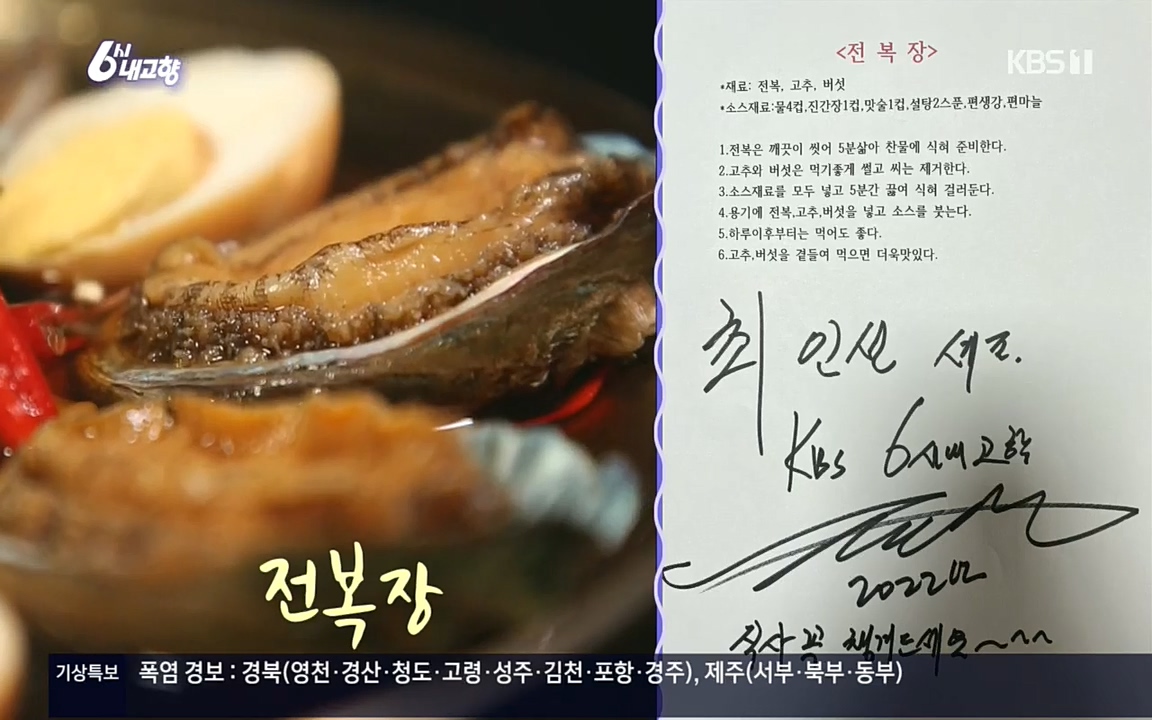 6시
내고향
KBS 1
<전 복 장>
*재료: 전복, 고추, 버섯
*소스재료:물4컵,진간장1컵,맛술1컵,설탕2스푼,편생강,편마늘
1.전복은 깨끗이 씻어 5분삶아 찬물에 식혀 준비한다.
2.고추와 버섯은 먹기좋게 썰고 씨는 제거한다.
3.소스재료를 모두 넣고 5분간 끓여 식혀 걸러둔다.
4.용기에 전복,고추,버섯을 넣고 소스를 붓는다.
5.하루이후부터는 먹어도 좋다.
6.고추,버섯을 곁들여 먹으면 더욱맛있다.
최 인선 셰프.
KBS 6시내고향
2022
식사 꼭 챙겨드세요~^^
전복장
기상특보 폭염 경보 : 경북(영천·경산·청도·고령·성주·김천·포항·경주), 제주(서부·북부·동부)